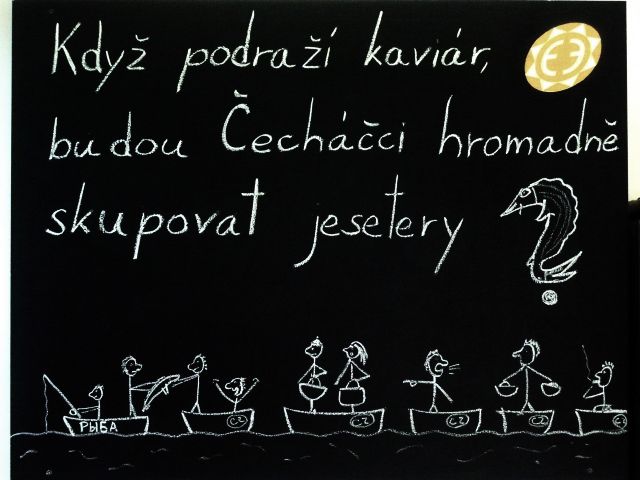 Když podraží kaviár,
budou Čecháčci hromadně
skupovat jesetery
РЫБА
CZ
CZ
CZ
CZ